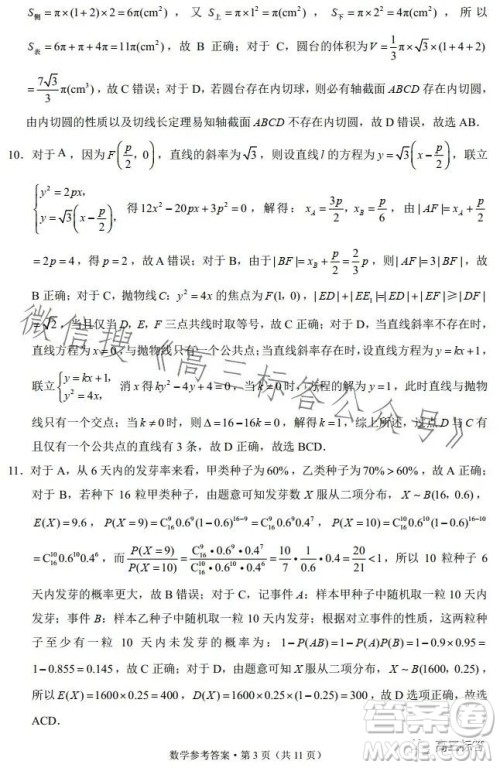 S侧=π×(1+2)×2=6π(cm²)，又 S上=π×1²=π(cm²)，S下=π×2²=4π(cm²)，所以
S表=6π+π+4π=11π(cm²)，故 B 正确；对于 C，圆台的体积为V=1/3π×√3×(1+4+2)
=7√3/3π(cm³)，故 C 错误；对于 D，若圆台存在内切球，则必有轴截面 ABCD 存在内切圆，
由内切圆的性质以及切线长定理易知轴截面 ABCD 不存在内切圆，故 D 错误，故选 AB．
10．对于 A，因为F(p/2, 0)，直线的斜率为√3，则设直线 l 的方程为y=√3(x-p/2)，联立
{y²=2px, y=√3(x-p/2), 得 12x²-20px+3p²=0，解得：x_A=3p/2, x_B=p/6，由|AF|=x_A+p/2
=2p=4，得 p=2，故 A 错误；对于 B，由于|BF|=x_B+p/2=2/3p，则|AF|=3|BF|，故
B 正确；对于 C，抛物线C：y²=4x 的焦点为F(1, 0)，|ED|+|EE₁|=|ED|+|EF|≥|DF|
=√2，当且仅当 D，E，F 三点共线时取等号，故 C 正确；对于 D，当直线斜率不存在时，
直线方程为 x=0，与抛物线只有一个公共点；当直线斜率存在时，设直线方程为 y=kx+1，
联立{y=kx+1, y²=4x, 消 x得 ky²-4y+4=0，当k=0 时，解得的方程为 y=1，此时直线与抛物
线只有一个交点；当 k≠0 时，则Δ=16-16k=0，解得k=1，综上所述，过点 D 与 C 有
且仅有一个公共点的直线有 3 条，故 D 正确，故选 BCD．
11．对于 A，从 6 天内的发芽率来看，甲类种子为60%，乙类种子为70%>60%，故 A 正确；
对于 B，若种下 16 粒甲类种子，由题意可知发芽数 X 服从二项分布，X～B(16, 0.6)，
E(X)=9.6，P(X=9)=C₁₆⁹0.6⁹(1-0.6)¹⁶⁻⁹=C₁₆⁹0.6⁹0.4⁷，P(X=10)=C₁₆¹⁰0.6¹⁰(1-0.6)¹⁶⁻¹⁰
=C₁₆¹⁰0.6¹⁰0.4⁶，而P(X=9)/P(X=10)=C₁₆⁹•0.6⁹•0.4⁷/C₁₆¹⁰•0.6¹⁰•0.4⁶=10/7•1/0.6•0.4=20/21<1，所以 10 粒种子 6
天内发芽的概率更大，故 B 错误；对于 C，记事件 A：样本甲种子中随机取一粒 10 天内
发芽；事件 B：样本乙种子中随机取一粒 10 天内发芽；根据对立事件的性质，这两粒种
子至少有一粒 10 天内未发芽的概率为：1-P(AB)=1-P(A)P(B)=1-0.9×0.95=
1-0.855=0.145，故 C 正确；对于 D，由题意可知发芽数 X 服从二项分布，X～B(1600, 0.25)，
所以E(X)=1600×0.25=400，D(X)=1600×0.25×0.75=300，故 D 选项正确，故选
ACD．
数学参考答案·第 3 页（共 11 页）
微信搜《高三标答公众号》